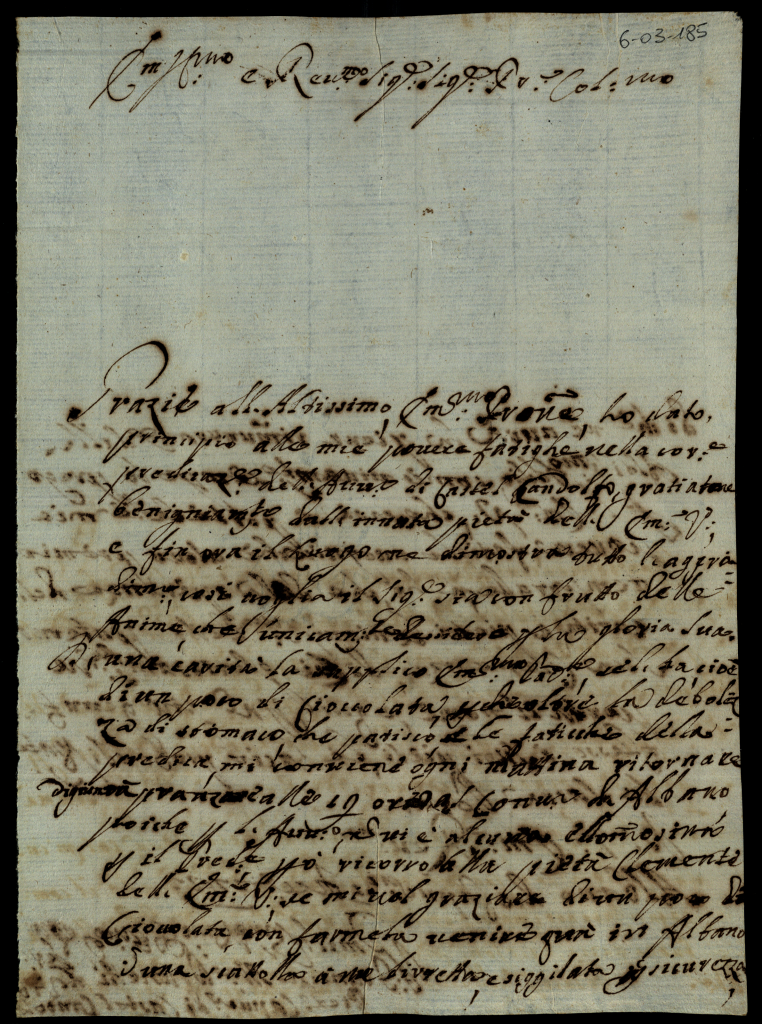 6-03-185
Em.mo e Reu.mo Sig.r Sig.r Pr.e Col.mo
Grazie all Altissimo, Em.mo Prone, ho dato
principio alle mie pouere fatighe nella cor.e
predicaz.e dell Auu.o di Castel Gandolfo, gratiatone
benignam.te dall innata pietà dell Em. V.
e fin ora il luogo me dimostra tutto l aggra
dim.o cosi uoglia il Sig.r sia con frutto delle
Anime che unicam.te desidero p la gloria Sua.
Di una carità la supplico Em.mo cioè
di un poco di Cioccolata p che oltre la debolez
za di stomaco che patisco e le fatiche della
predica mi conuiene ogni mattina ritornare
digiuno à pranzare alle 19 ore al Conu.o di Albano
poiche p l Auu.o ui è alcuna ellemosina
p il Pred.e ricorro alla pietà Clemente
dell Em. V. se mi uol graziare di un poco di
Cioccolata con farmela uenire quà in Albano
una scattola à me diretta, e siggilata p sicurezza